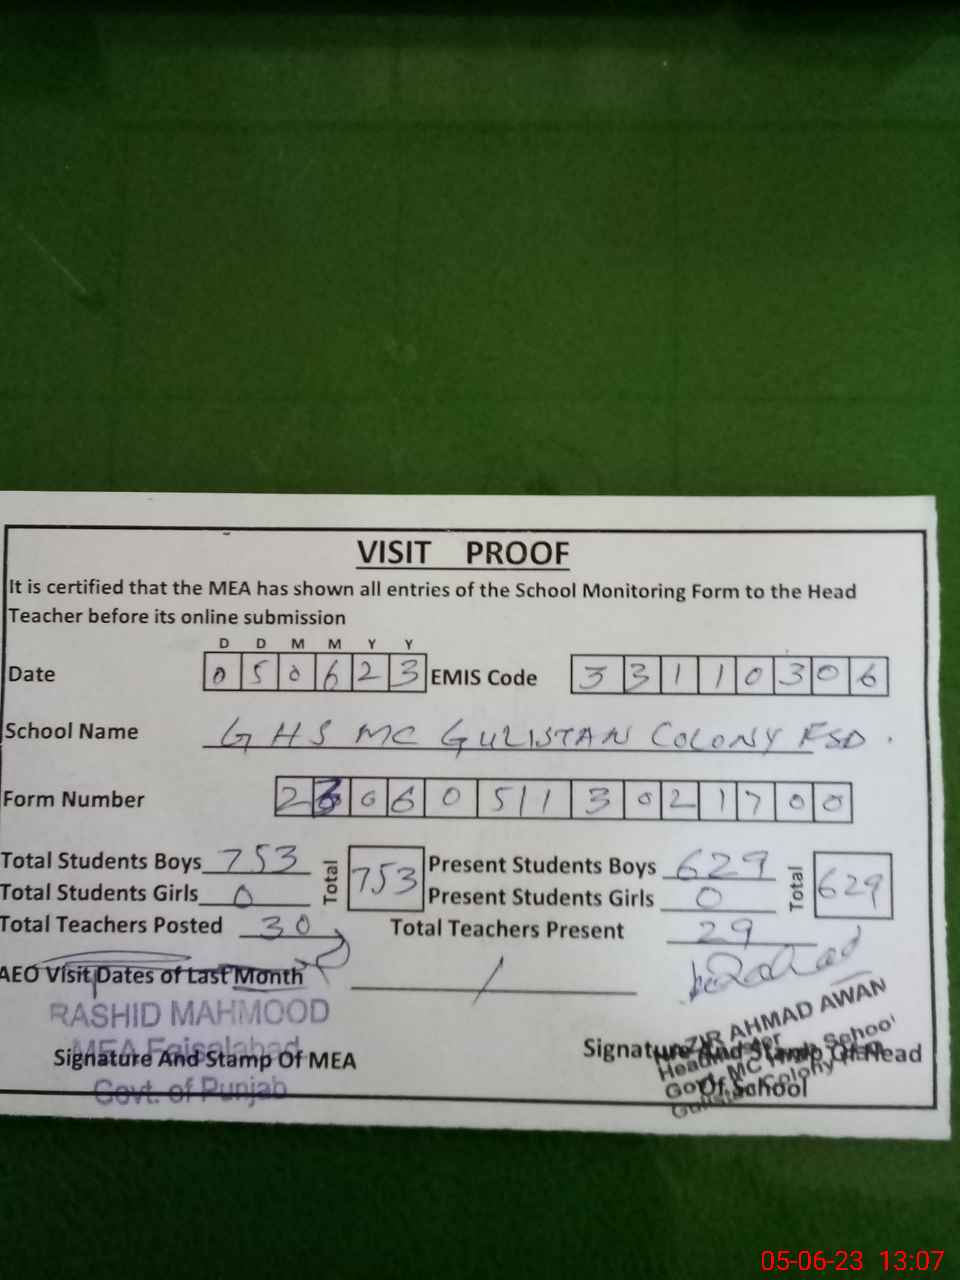 VISIT PROOF
It is certified that the MEA has shown all entries of the School Monitoring Form to the Head
Teacher before its online submission
D D M M Y Y
Date 0 5 0 6 2 3 EMIS Code 3 3 1 1 0 3 0 6
School Name GHS MC GULISTAN COLONY FSD.
Form Number 2 3 0 6 0 5 1 1 3 0 2 1 7 0 0
Total Students Boys 753 Total 753 Present Students Boys 629 Total 629
Total Students Girls 0 Present Students Girls 0
Total Teachers Posted 30 Total Teachers Present 29
AEO Visit Dates of Last Month /
RASHID MAHMOOD
MEA Faisalabad
Signature And Stamp Of MEA
Govt. of Punjab
NAZIR AHMAD AWAN
Signature And Stamp Of Head
Of School
Headmaster
Govt. MC High School
Gulistan Colony
05-06-23 13:07